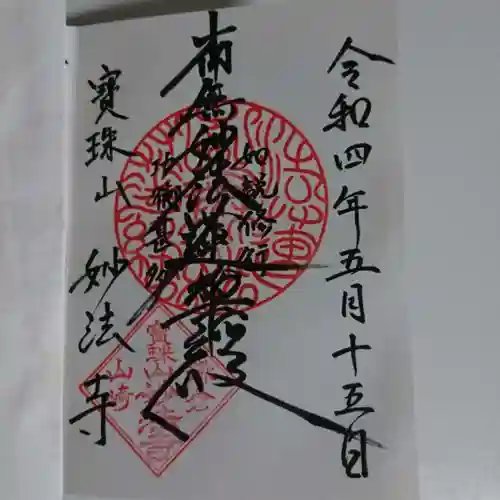 令和四年五月十五日
如説修行
南無妙法蓮華経
寶珠山 妙法寺
寶珠山
山崎